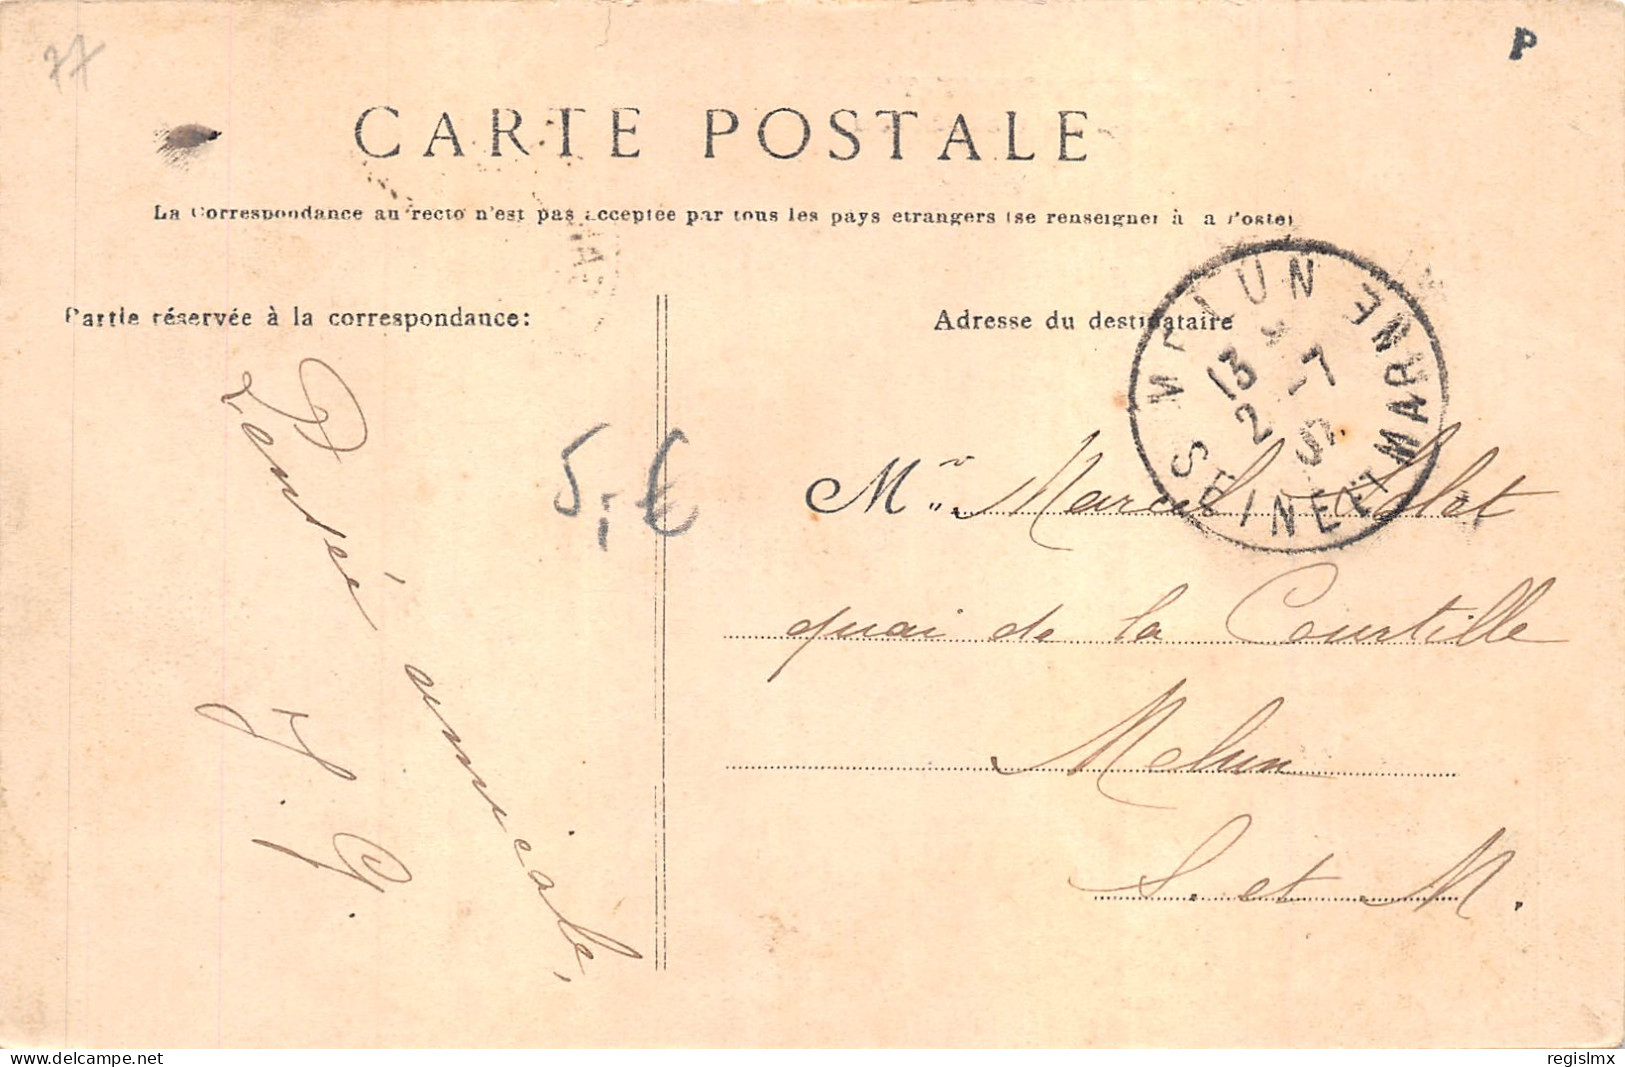 77
P
CARTE POSTALE
La Correspondance au recto n'est pas acceptée par tous les pays étrangers (se renseigner à la Poste)
Partie réservée à la correspondance:
Adresse du destinataire
MELUN
13
2 -7
SEINE ET MARNE
5,€
Pensée amicale,
J. G.
Mr Marcel
quai de la Courtille
Melun
S. et M.
www.delcampe.net
regislmx